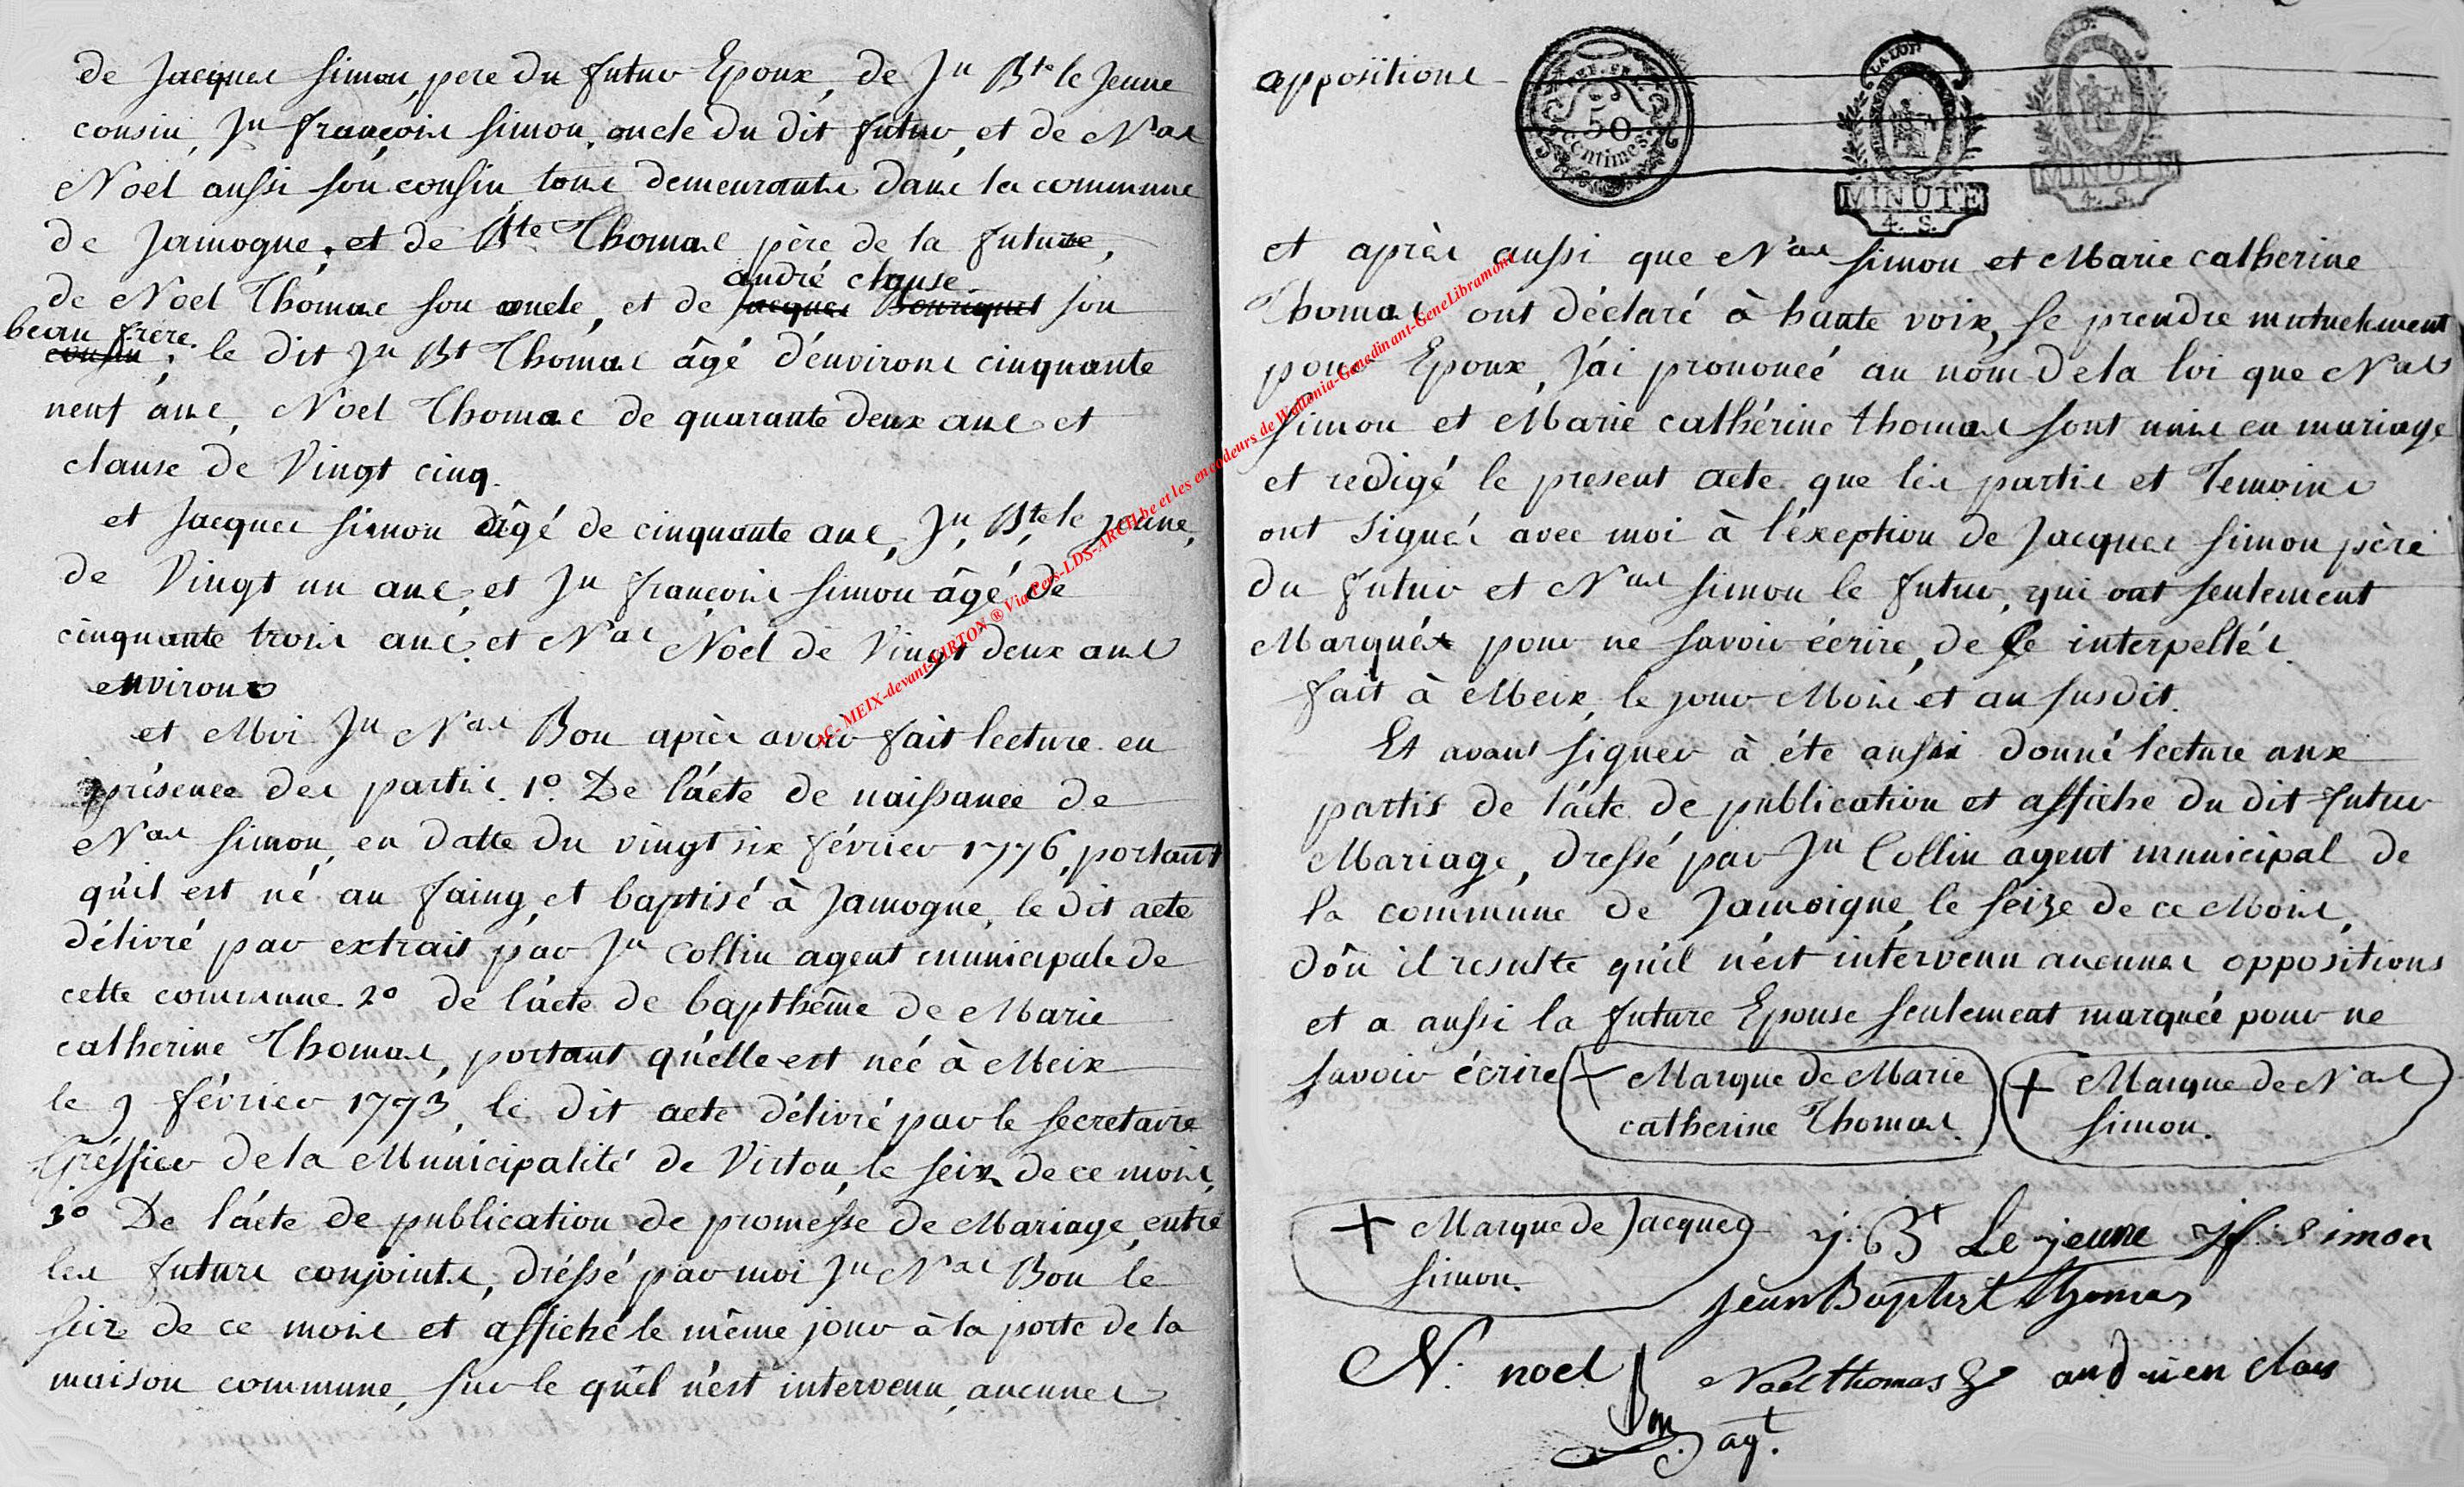 de Jacques Simon, pere du futur Epoux, de Jn Bte le Jeune
cousin, Jn françois Simon, oncle du dit futur, et de Nas
Noel aussi son cousin tous demeurants dans la commune
de Jamogne, et de Bte Thomas père de la future,
andré clause
de Noel Thomas son oncle, et de Jacques Bouriquet son
beau frère
cousin ; le dit Jn Bt Thomas âgé d'environs cinquante
neuf ans, Noel Thomas de quarante deux ans et
clause de Vingt cinq.
et Jacques Simon âgé de cinquante ans, Jn, Bte le jeune,
de Vingt un ans, et Jn françois Simon âgé de
cinquante trois ans, et Nas Noel de Vingt deux ans
environs
et Moi Jn Nas Bon après avoir fait lecture en
présence des partis. 1º. De l'acte de naissance de
Nas Simon, en datte du vingt six février 1776, portant
qu'il est né au faing, et baptisé à Jamogne, le dit acte
délivré par extrait par Jn Collin agent municipale de
cette commune. 2º de l'acte de bapthême de Marie
catherine Thomas, portant qu'elle est néé à Meix
le 9 février 1773, le dit acte délivré par le secretaire
Gréffier de la Municipalité de Virton, le seix de ce mois,
3º De l'acte de publication de promesse de Mariage, entre
les futurs conjoints, dréssé par moi Jn Nas Bon le
seix de ce mois et affiché le même jour à la porte de la
maison commune, sur le quél n'est intervenu, aucunes
oppositions
50
Centimes
LA LOI
MINUTE
4. S.
MINUTE
4. S.
et après aussi que Nas Simon et Marie catherine
Thomas ont déclaré à haute voix, se prendre mutuelement
pour Epoux, j'ai prononcé au nom de la loi que Nas
Simon et Marie cathérine thomas sont unis en mariage
et redigé le present acte que les partis et Temoins
ont signés avec moi à l'éxeption de Jacques Simon père
du futur et Nas Simon le futur, qui ont seulement
Marqués pour ne savoir écrire, de ce interpellés.
fait à Meix, le jour Mois et an susdit.
Et avant signer à éte aussi donné lecture aux
partis de l'acte de publication et affiche du dit futur
Mariage, dressé par Jn Collin agent municipal de
la commune de Jamoigne, le seize de ce Mois,
d'ôu il resulte qu'il n'est intervenu aucunes oppositions
et a aussi la future Epouse seulement marquée pour ne
savoir écrire + Marque de Marie
catherine Thomas.
+ Marque de Nas
Simon.
+ Marque de Jacques
Simon.
j. Bt Le jeune jf. Simon
jean Baptist thomas
N. noel Noel thomas andrien claus
Bon agt.
AC- MEIX-devant-VIRTON ® Via Pers-LDS-ARCH.be et les encodeurs de Wallonia-Genedinant-GeneLibramont